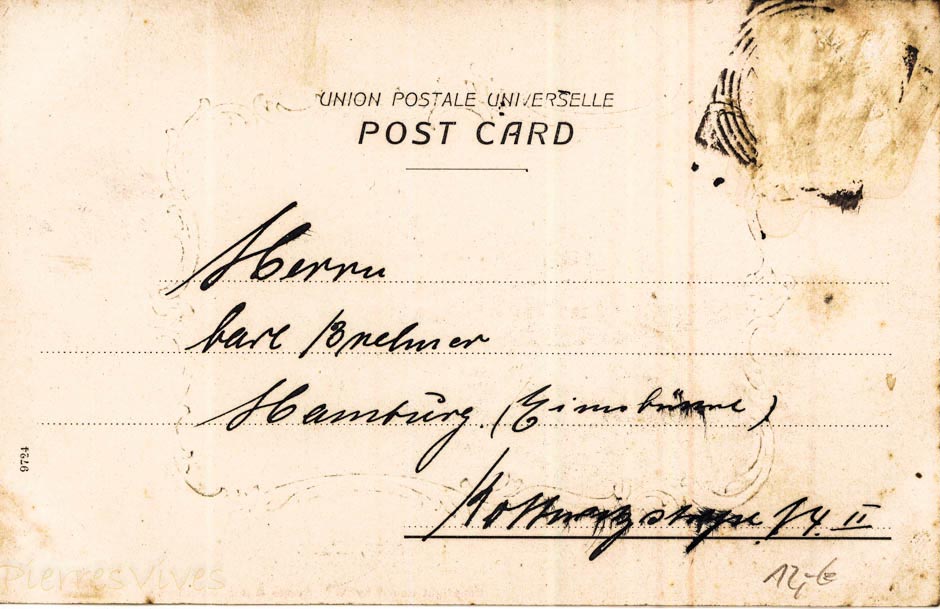 UNION POSTALE UNIVERSELLE
POST CARD
Herrn
Carl Brehmer
Hamburg. (Eimsbüttel)
14. II
9724
12,-€
PierresVives